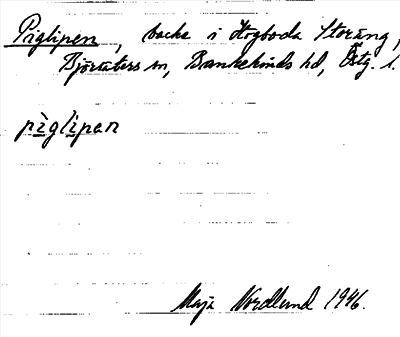 Piglipen, backe i Högboda Storäng,
Björsäters sn, Bankekinds hd, Östg. l.
pìglìpen
Maja Nordlund 1946.